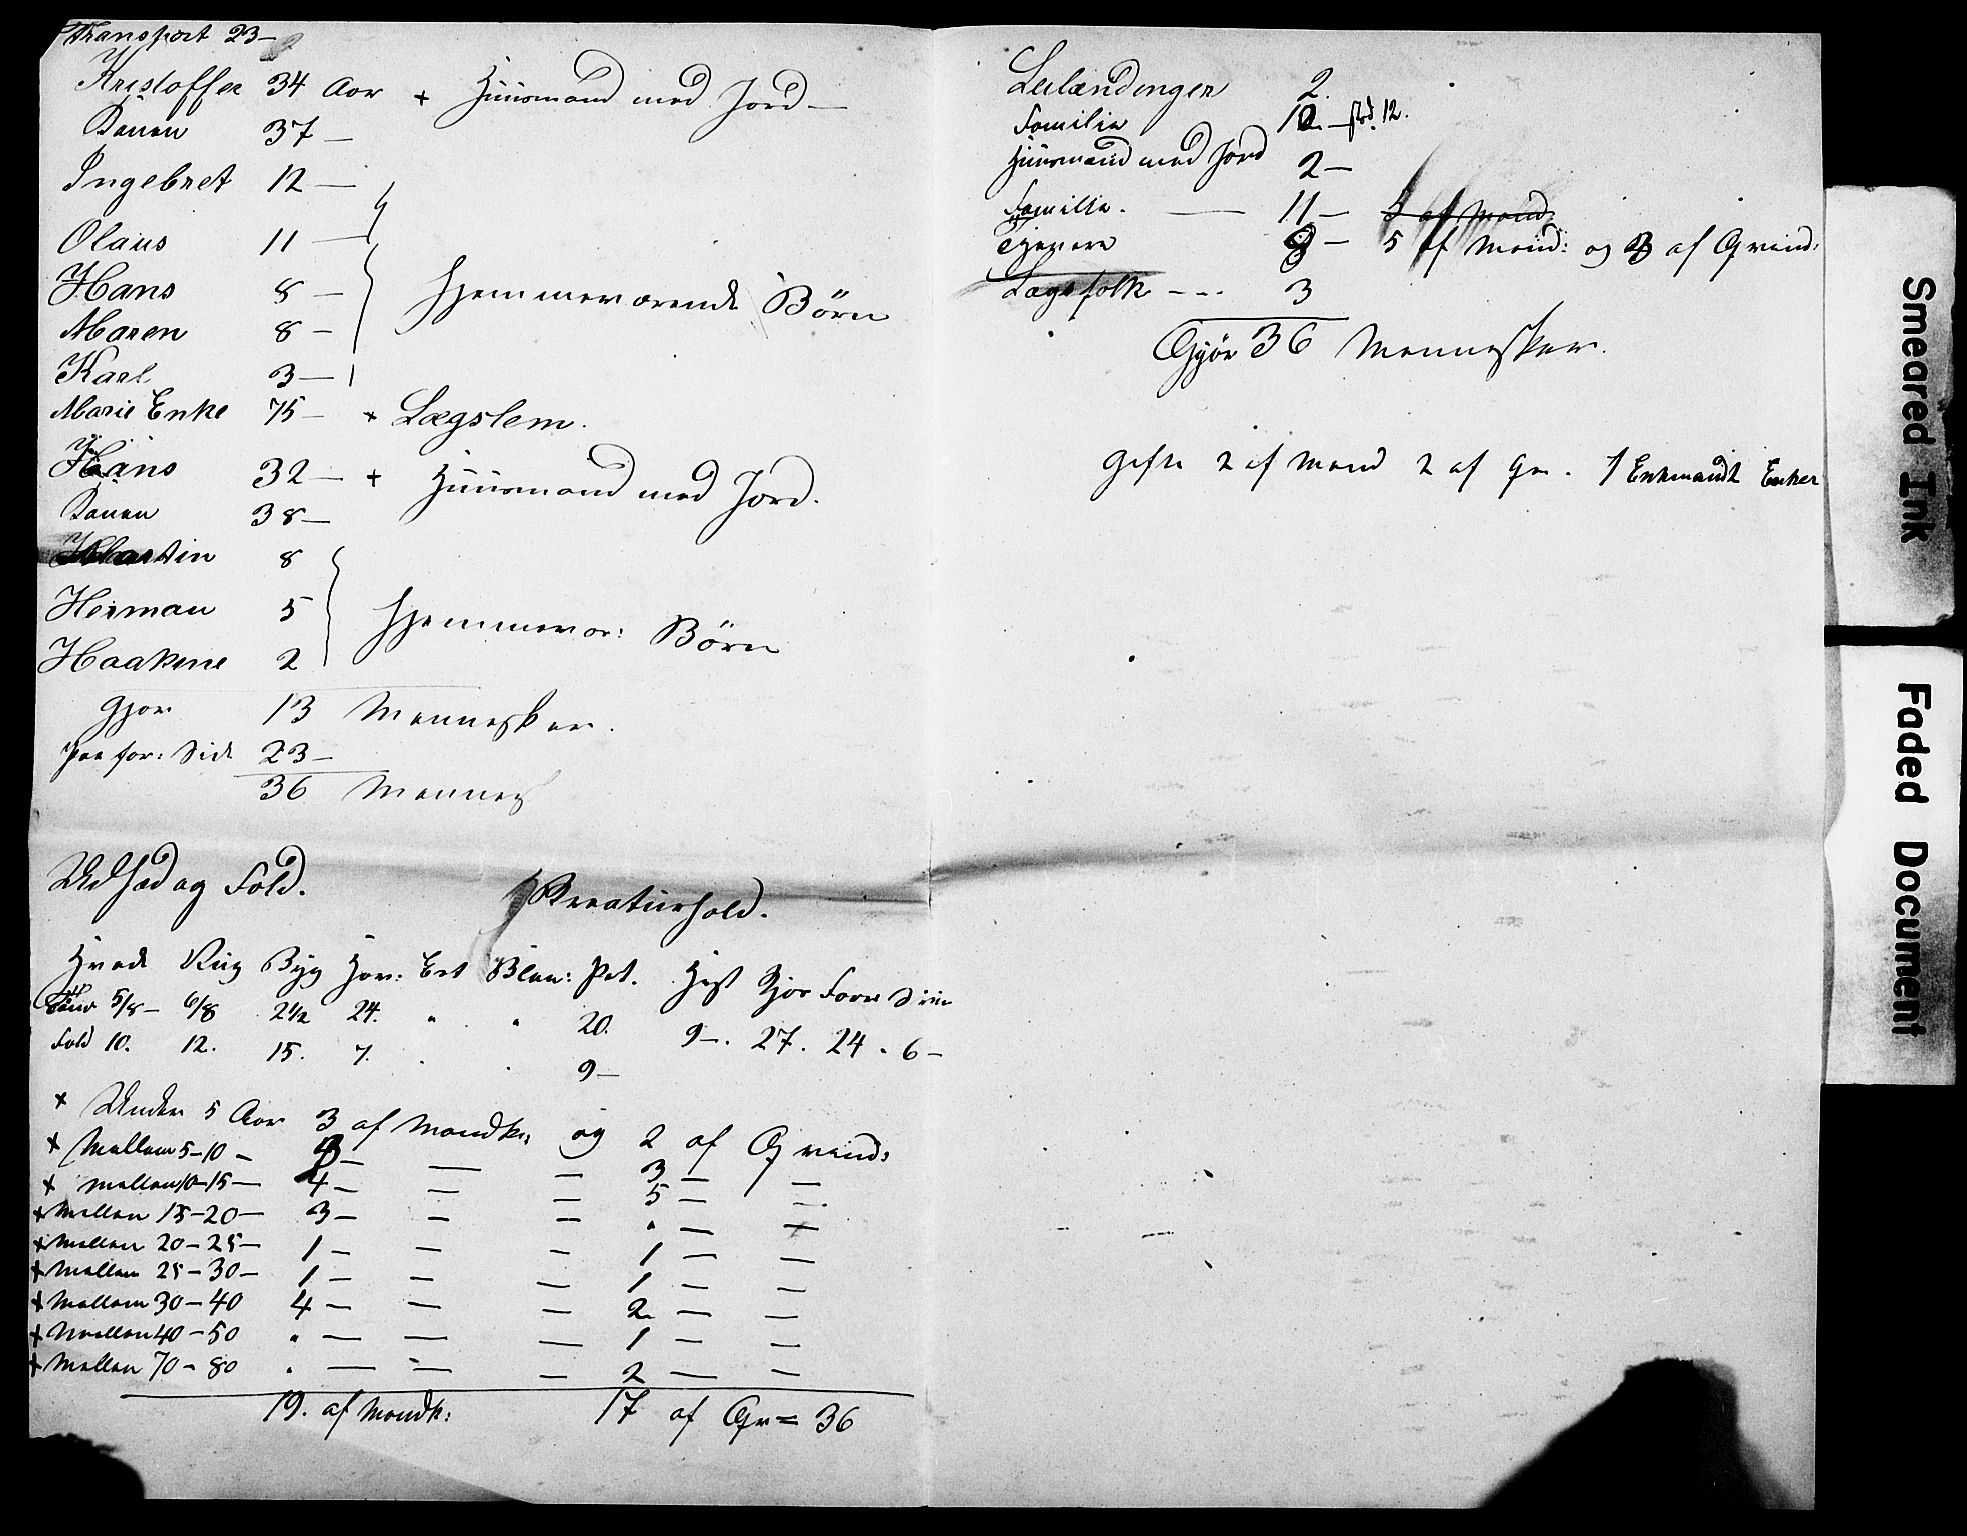 Transport 23—
Kristoffer 34 Aar + Huusmand med Jord —
Konen 37 —
Ingebret 12 —
Olaus 11 —
Hans 8 —
Hjemmeværende Børn
Maren 8 —
Karl 3 —
Marie Enke 75 — + Lægslem.
Hans 32 — + Huusmand med Jord.
Konen 38 —
Martin 8
Herman 5
Hjemmevær: Børn
Haakene 2
Gjør 13 Mennesker.
Paa for: Side 23 —
36 Mennes
Udsæd og Fold. Kreaturhold.
Hvede Rug Byg Hav: Ert Blan: Pot. Hest Kjør Faar Sviin
5/8 — 6/8 2 1/2 24. " " 20.
9 —. 27. 24. 6 —
Fold 10. 12. 15. 7. 9 —
+ Under 5 Aar 3 af Mandk: og 2 af Qvind:
+ Mellem 5-10 — 3 — — — 3 — —
+ Mellem 10-15 — 4 — — — 5 — —
+ Mellem 15-20 — 3 — — — " — —
+ Mellem 20-25 — 1 — — — 1 — —
+ Mellem 25-30 — 1 — — — 1 — —
+ Mellem 30-40 4 — — — 2 — —
+ Mellem 40-50 " — — — 1 — —
+ Mellem 70-80 " — — — 2 — —
19. af Mandk: 17 af Qv = 36
Leilændinger 2.
Familie 12. — 12.
Huusmænd med Jord 2 —
Familie. — 11 — 5 af Mand:
Tjenere 8 — 5 af Mand: og 3 af Qvind:
Lægsfolk --- 3
Gjør 36 Mennesker.
Gifte 2 af Mand 2 af Qv. 1 Enkemand 2 Enker
Smeared Ink
Faded Document